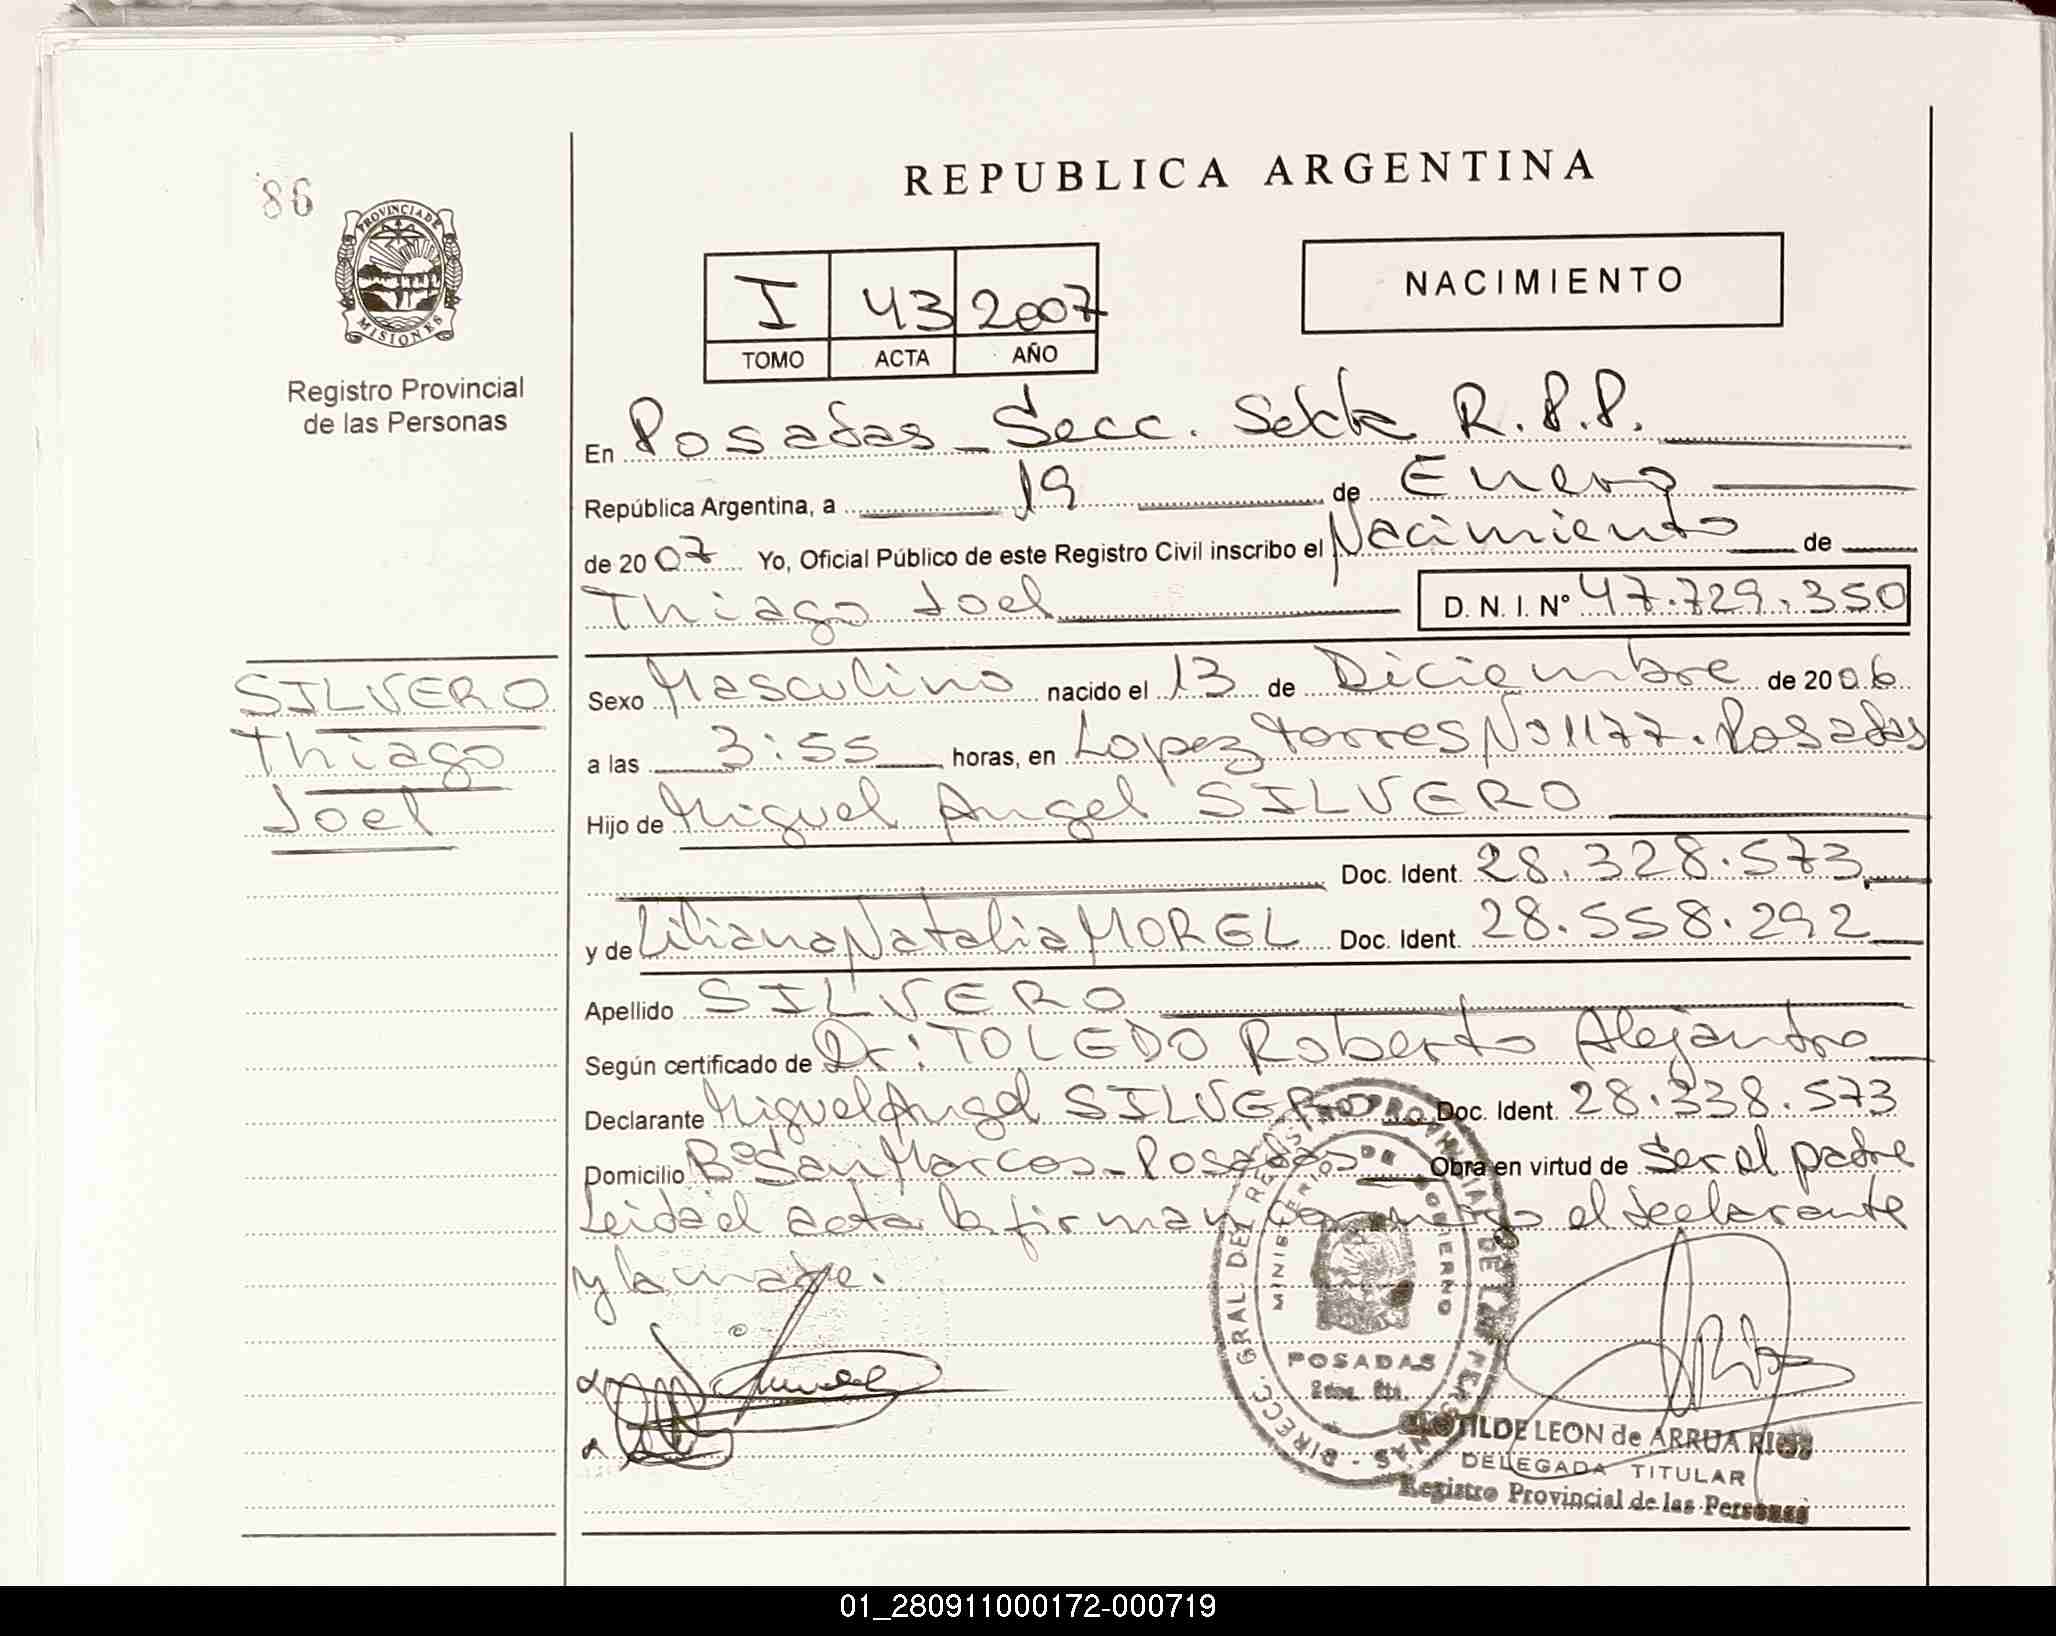 86
PROVINCIA DE
MISIONES
Registro Provincial
de las Personas
REPUBLICA ARGENTINA
I 43 2007
TOMO ACTA AÑO
NACIMIENTO
En Posadas - Secc. Sexta R.P.P.
República Argentina, a 19 de Enero
de 2007 Yo, Oficial Público de este Registro Civil inscribo el Nacimiento de
Thiago Joel D. N. I. Nº 47.729.350
SILVERO
Thiago
Joel
Sexo Masculino nacido el 13 de Diciembre de 2006
a las 3:55 horas, en Lopez torres Nº 1177. Posadas
Hijo de Miguel Angel SILVERO
Doc. Ident. 28.328.573
y de Liliana Natalia MOREL Doc. Ident. 28.558.292
Apellido SILVERO
Según certificado de Dr: TOLEDO Roberto Alejandro
Declarante Miguel Angel SILVERO Doc. Ident. 28.338.573
Domicilio Bº San Marcos - Posadas Obra en virtud de Ser el padre
Leida el acta la firman conmigo el declarante
y la madre.
DIRECC. GRAL. DEL REGISTRO PROVINCIAL DE LAS PERSONAS
MINISTERIO DE GOBIERNO
POSADAS
CLOTILDE LEON de ARRUA RIOS
DELEGADA TITULAR
Registro Provincial de las Personas
01_280911000172-000719